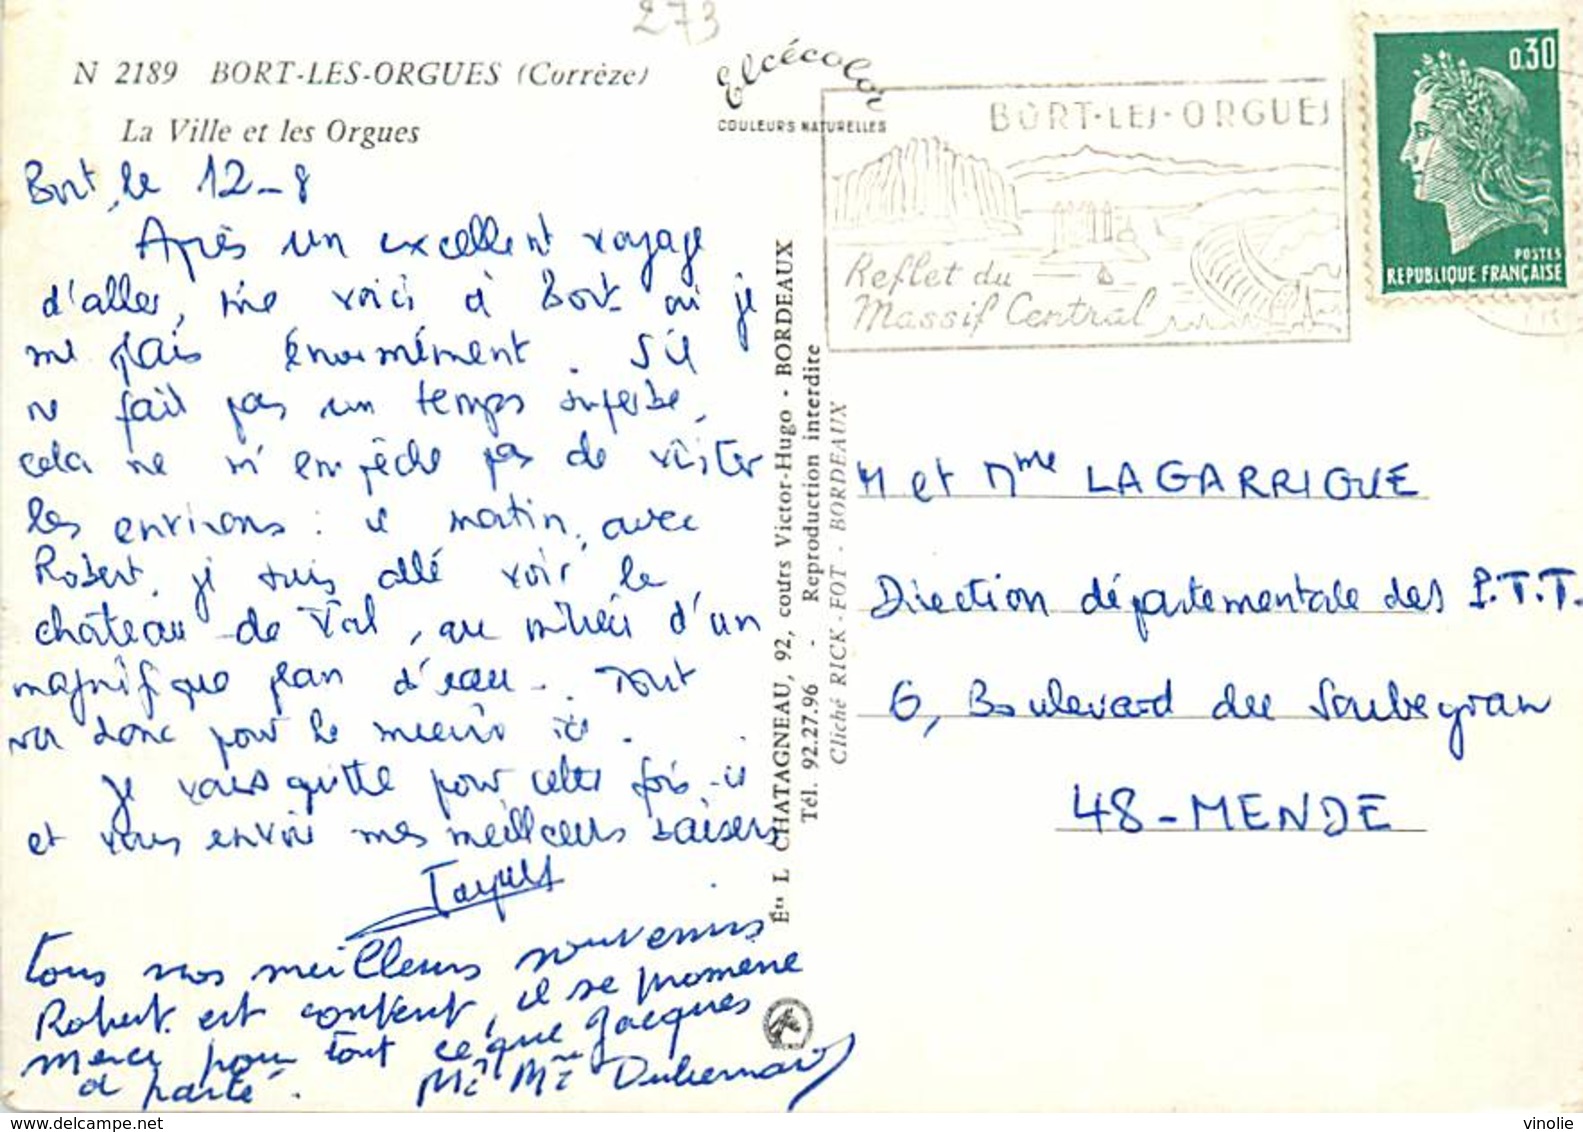 273
N 2189 BORT-LES-ORGUES (Corrèze)
La Ville et les Orgues
Elcécolor
COULEURS NATURELLES
BORT-LES-ORGUES
Reflet du
Massif Central
0,30
POSTES
REPUBLIQUE FRANÇAISE
Bort, le 12-8
Après un excellent voyage
d'aller, me voici à Bort où je
me plais énormément. S'il
ne fait pas un temps superbe,
cela ne m'empêche pas de visiter
les environs : ce matin, avec
Robert, je suis allé voir le
chateau de Val, au milieu d'un
magnifique plan d'eau. Tout
va donc pour le mieux ici.
Je vous quitte pour cette fois-ci
et vous envoie mes meilleurs baisers
Jacques
tous nos meilleurs souvenirs
Robert est content, il se promène
Merci pour tout ce que Jacques
a porté.
Mr Mme
Éts L CHATAGNEAU, 92, cours Victor-Hugo - BORDEAUX
Tél. 92.27.96 - Reproduction interdite
Cliché RICK-FOT - BORDEAUX
M et Mme LAGARRIGUE
Direction départementale des P.T.T.
6, Boulevard du Soubeyran
48-MENDE
vinolie